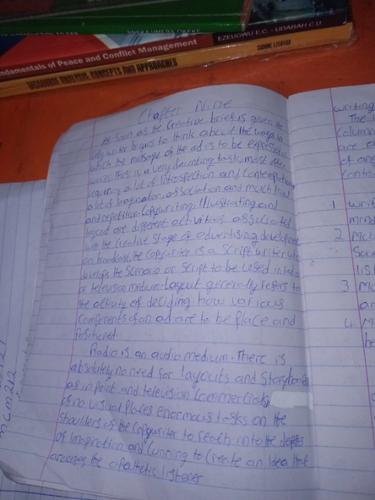 EZEUGWU E.C. - UDABAH C.U.
Fundamentals of Peace and Conflict Management
SUNNIE
DISCOURSE ANALYSIS: CONCEPTS AND APPROACHES
Chapter Nine
As soon as the Creative brief is given, the
copy writer begins to think about the ways in
which the message of the ad is to be expressed
This is a very daunting task most often
requiring a lot of introspection and contemplation
a lot of imagination, association and much trial
and repetition. Copywriting, Illustrating and
layout are different activities associated
with the Creative stage of advertising development
on broadcast, the Copywriter is a script writer who
develops the Scenario or script to be used in
or television medium. Layout generally refers to
the activity of deciding how various
Components of an ad are to be place and
Positioned.
Radio is an audio medium. There is
absolutely no need for layouts and Storyboards
as in print and television Commercials
is no visual places enormous tasks on the
Shoulders of the Copywriter to reach into the depths
of imagination and Cunning to Create an Idea that
arouses the apathetic listener
writing
The
Column
are
of
Conta
1 writ
mind
2
list
3
ar
4
h